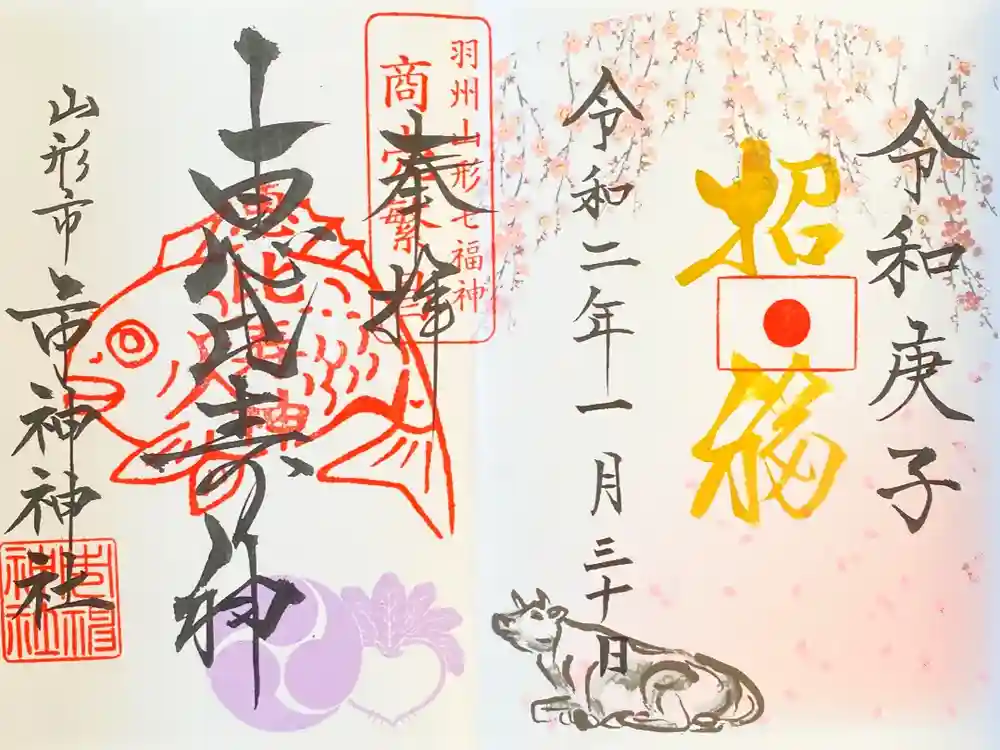 令和庚子
招福
令和二年一月三十日
羽州山形七福神
商売繁盛
奉拝
恵比寿神
恵比寿神
山形市 市神神社